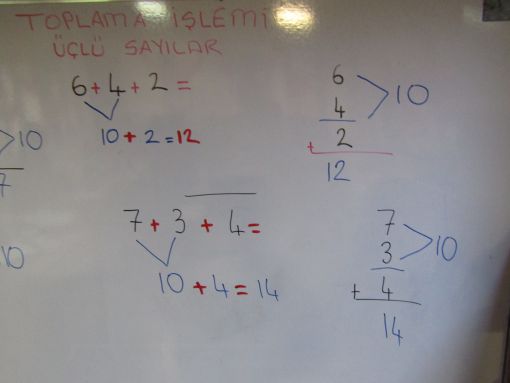 TOPLAMA İŞLEMİ
ÜÇLÜ SAYILAR
6+4+2=
10+2=12
6
4
>10
+ 2
12
>10
7
7+3+4=
10+4=14
7
3
>10
+ 4
14
10